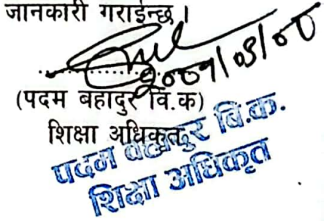 जानकारी गराईन्छ।
(पदम बहादुर वि.क)
शिक्षा अधिकृत
पदम बहादुर बि.क.
शिक्षा अधिकृत